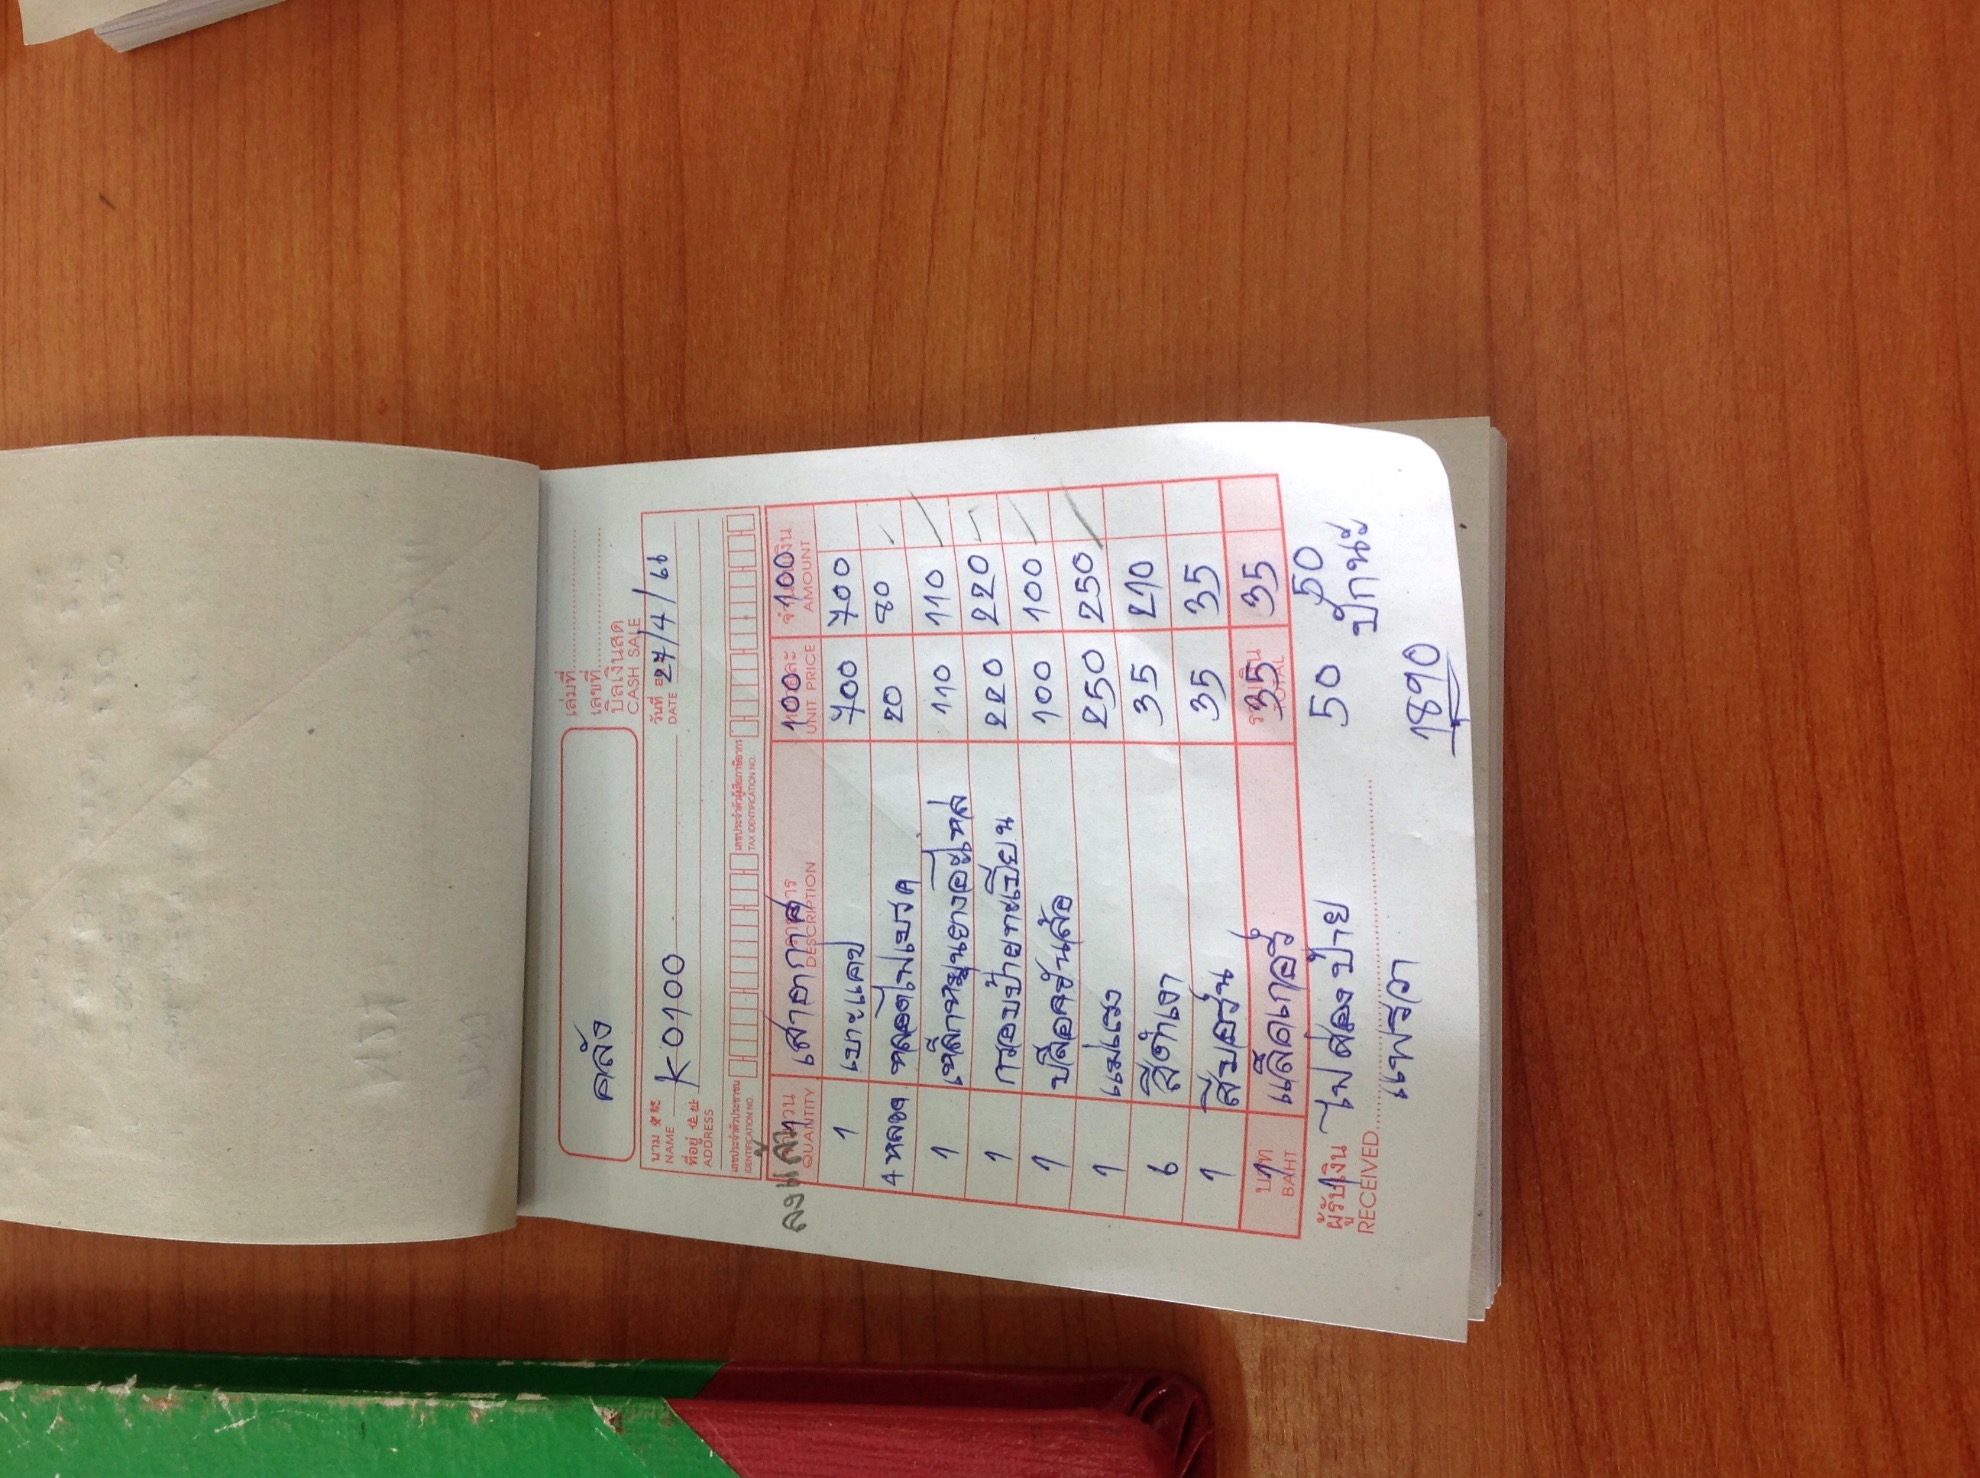 คลัง
เล่มที่
เลขที่
บิลเงินสด
CASH SALE
นาม
NAME K 0100
วันที่
DATE 27/4/66
ที่อยู่
ADDRESS
เลขประจำตัวประชาชน
IDENTIFICATION NO.
เลขประจำตัวผู้เสียภาษีอากร
TAX IDENTIFICATION NO.
ลงแล้ว
จำนวน รายการ หน่วยละ จำนวนเงิน
QUANTITY DESCRIPTION UNIT PRICE AMOUNT
1 เสาอากาศ 100 100
1 เบาะแคป 700 700
4 หลอด หลอดไฟเบรค 20 80
1 เหล็กหมุนยางอะไหล่ 110 110
1 กรอบป้ายทะเบียน 220 220
1 ปลือคขันล้อ 100 100
1 แม่แรง 250 250
6 สีดำเงา 35 210
1 สีบอร์น 35 35
1 แล็คเกอร์ 35 35
บาท รวมเงิน
BAHT TOTAL
1 ไฟส่องป้าย 50 50
ผู้รับเงิน
RECEIVED
แพรวา
ปักนะ
1890